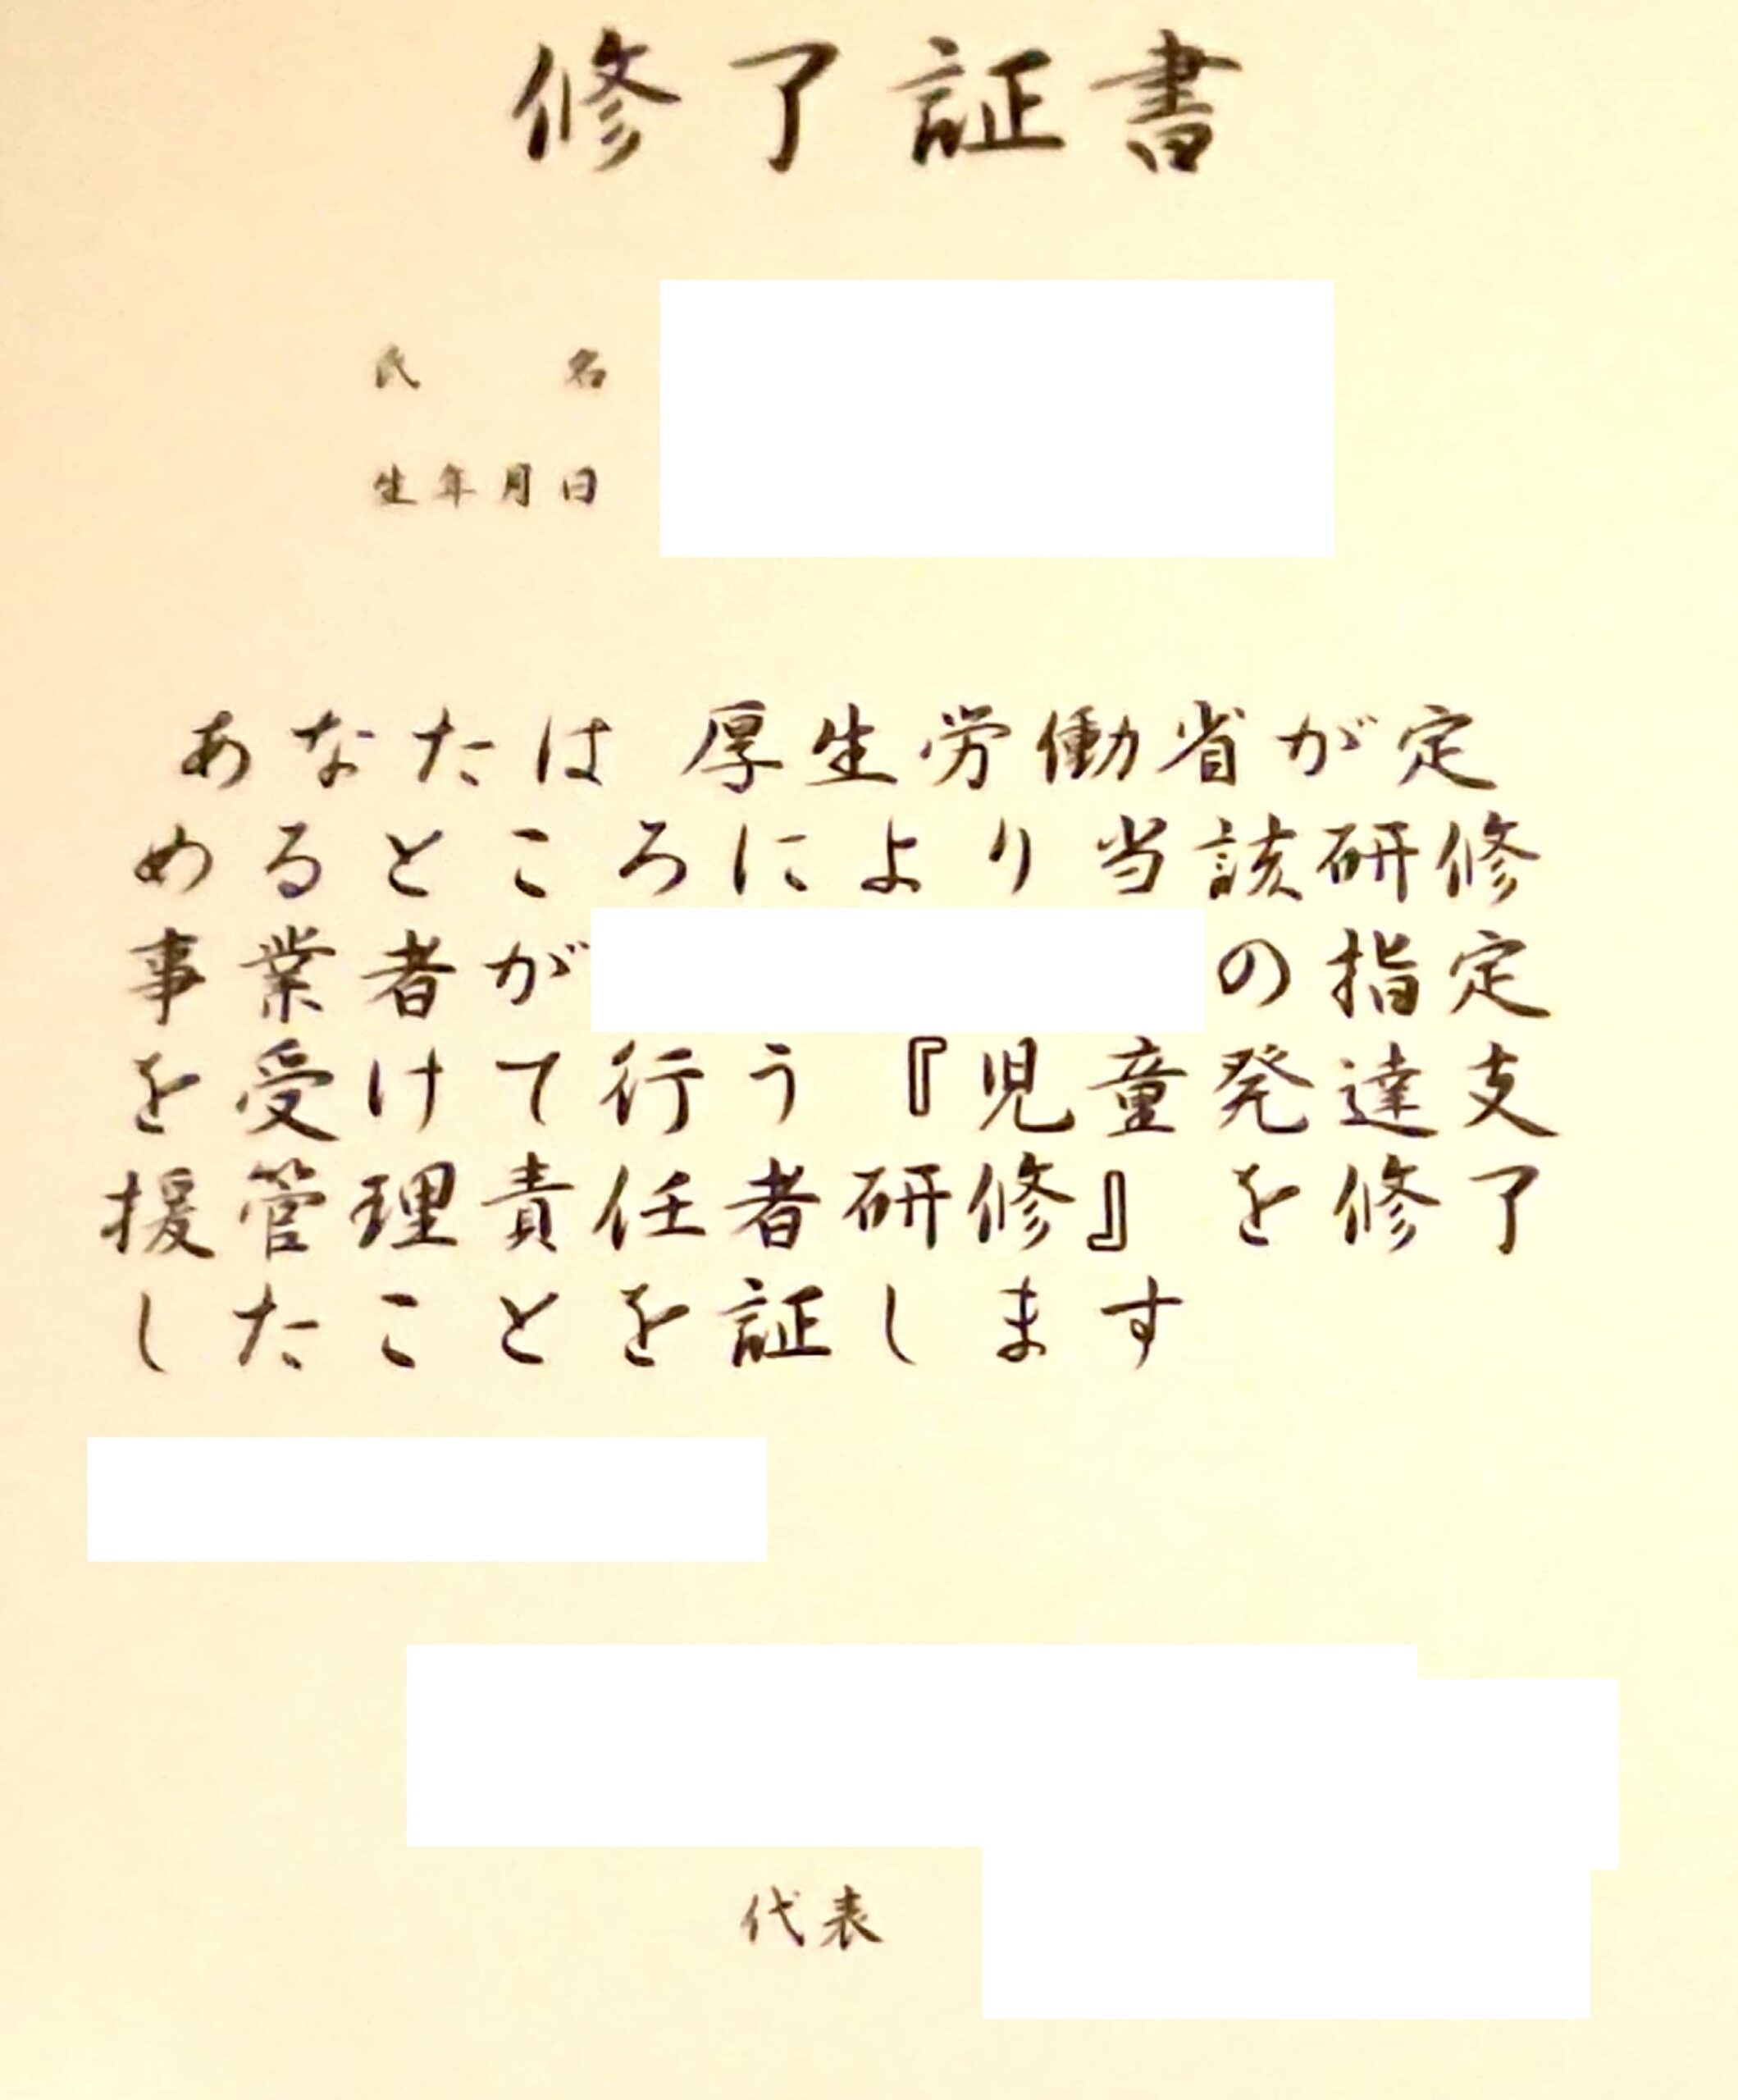 修了証書
氏名
生年月日
あなたは厚生労働省が定
めるところにより当該研修
事業者が の指定
を受けて行う『児童発達支
援管理責任者研修』を修了
したことを証します
代表